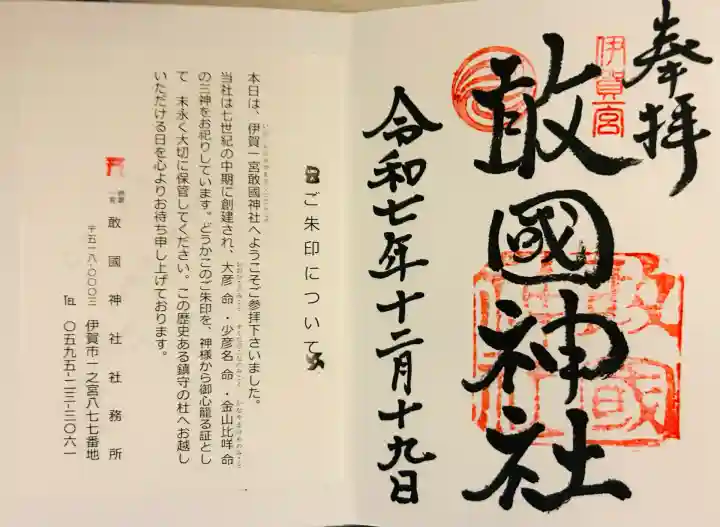 奉拝
伊賀一宮
敢國神社
敢國神社
令和七年十二月十九日
ご朱印について
本日は、伊賀一宮敢國神社へようこそご参拝下さいました。
当社は七世紀の中期に創建され、大彦命・少彦名命・金山比咩命
の三神をお祀りしています。どうかこのご朱印を、神様から御心籠る証とし
て 末永く大切に保管してください。この歴史ある鎮守の杜へお越し
いただける日を心よりお待ち申し上げております。
敢國神社社務所
〒五一八-〇〇〇三 伊賀市一之宮八七七番地
℡ 〇五九五-二三-三〇六一